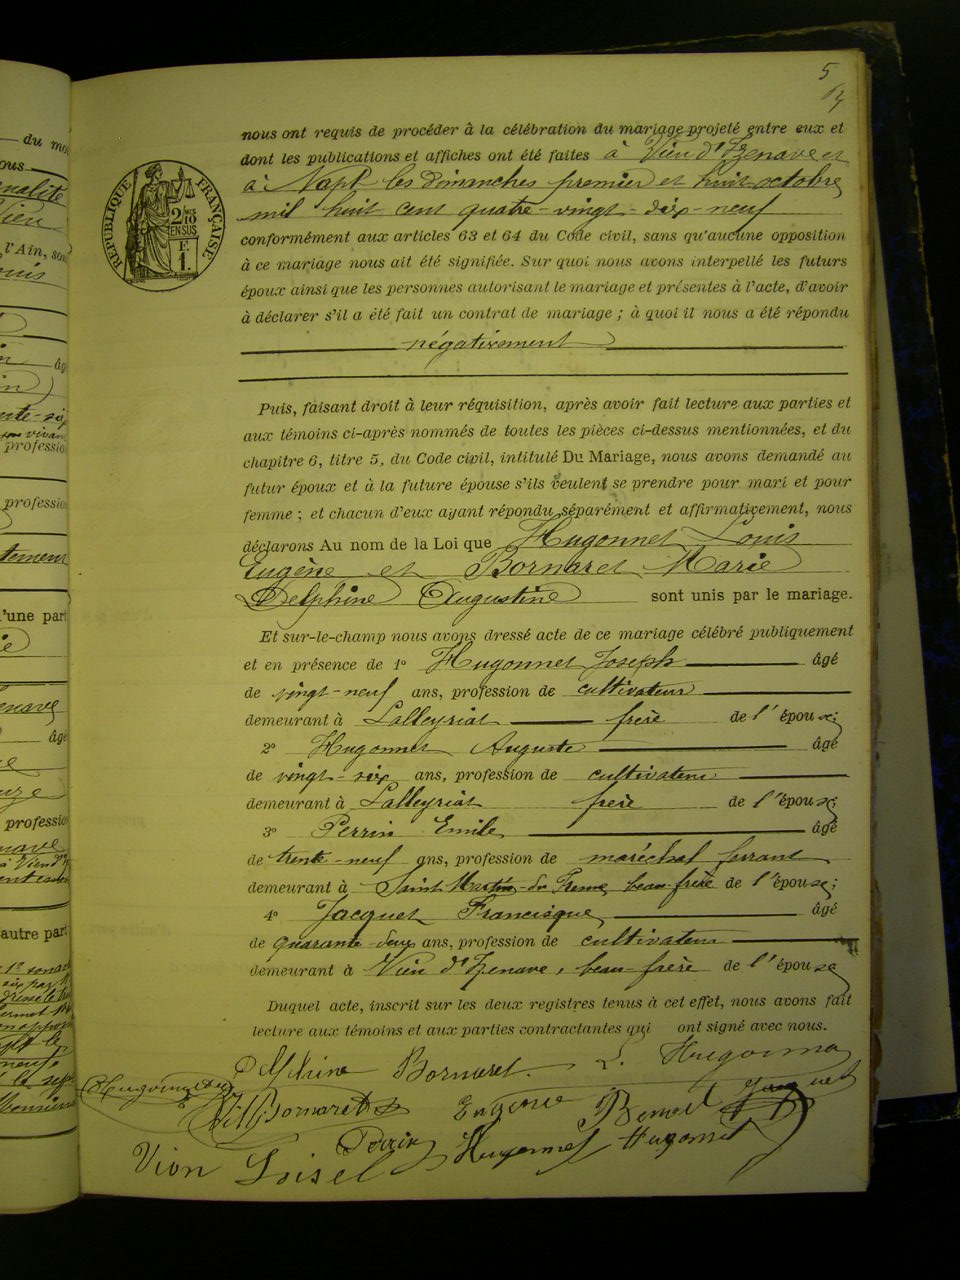 5
du mo
nous ont requis de procéder à la célébration du mariage projeté entre eux et
dont les publications et affiches ont été faites à Vieu d'Izenave et
à Napt les dimanches premier et huit octobre
mil huit cent quatre-vingt-dix-neuf
RÉPUBLIQUE FRANÇAISE
2/10 EN SUS
F. 1.
conformément aux articles 63 et 64 du Code civil, sans qu'aucune opposition
à ce mariage nous ait été signifiée. Sur quoi nous avons interpellé les futurs
époux ainsi que les personnes autorisant le mariage et présentes à l'acte, d'avoir
à déclarer s'il a été fait un contrat de mariage ; à quoi il nous a été répondu
négativement
Puis, faisant droit à leur réquisition, après avoir fait lecture aux parties et
aux témoins ci-après nommés de toutes les pièces ci-dessus mentionnées, et du
chapitre 6, titre 5, du Code civil, intitulé Du Mariage, nous avons demandé au
futur époux et à la future épouse s'ils veulent se prendre pour mari et pour
femme ; et chacun d'eux ayant répondu séparément et affirmativement, nous
déclarons Au nom de la Loi que Hugonnet Louis
Eugène et Bornaret Marie
Delphine Augustine sont unis par le mariage.
Et sur-le-champ nous avons dressé acte de ce mariage célébré publiquement
et en présence de 1º Hugonnet Joseph âgé
de vingt-neuf ans, profession de cultivateur
demeurant à Lalleyriat frère de l'époux;
2º Hugonnet Auguste âgé
de vingt-six ans, profession de cultivateur
demeurant à Lalleyriat frère de l'époux;
3º Perrin Emile âgé
de trente-neuf ans, profession de maréchal ferrant
demeurant à Saint Martin-du-Fresne beau-frère de l'épouse;
4º Jacquet Francisque âgé
de quarante-deux ans, profession de cultivateur
demeurant à Vieu d'Izenave, beau-frère de l'épouse
Duquel acte, inscrit sur les deux registres tenus à cet effet, nous avons fait
lecture aux témoins et aux parties contractantes qui ont signé avec nous.
Delphine Bornaret L. Hugonnet
Bornaret Eugénie
Perrin Hugonnet Hugonnet
Vion Loisel